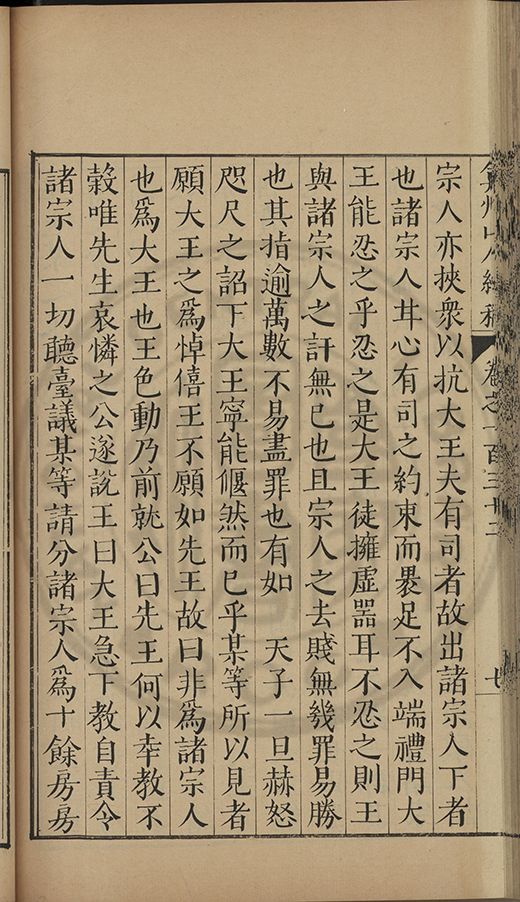 弇州山人續稿 卷之一百三十二 七
宗人亦挾衆以抗大王夫有司者故出諸宗人下者
也諸宗人幷心有司之約束而褁足不入端禮門大
王能忍之乎忍之是大王徒擁虛器耳不忍之則王
與諸宗人之訐無已也且宗人之去賤無幾罪易勝
也其指逾萬數不易盡罪也有如 天子一旦赫怒
咫尺之詔下大王寧能偃然而已乎某等所以見者
願大王之爲悼僖王不願如先王故曰非爲諸宗人
也爲大王也王色動乃前就公曰先王何以幸教不
榖唯先生哀憐之公遂說王曰大王急下教自責令
諸宗人一切聽臺議某等請分諸宗人爲十餘房房